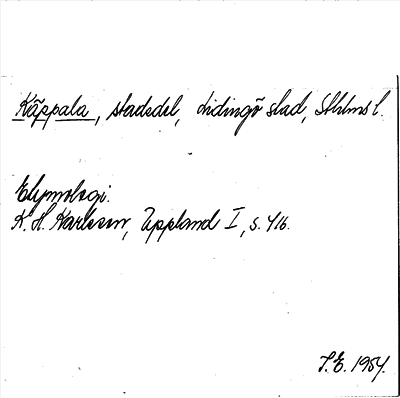 Käppala, stadsdel, Lidingö stad, Sthlms l.
Etymologi.
K. H. Karlsson, Uppland I, s. 416.
T.E. 1954.